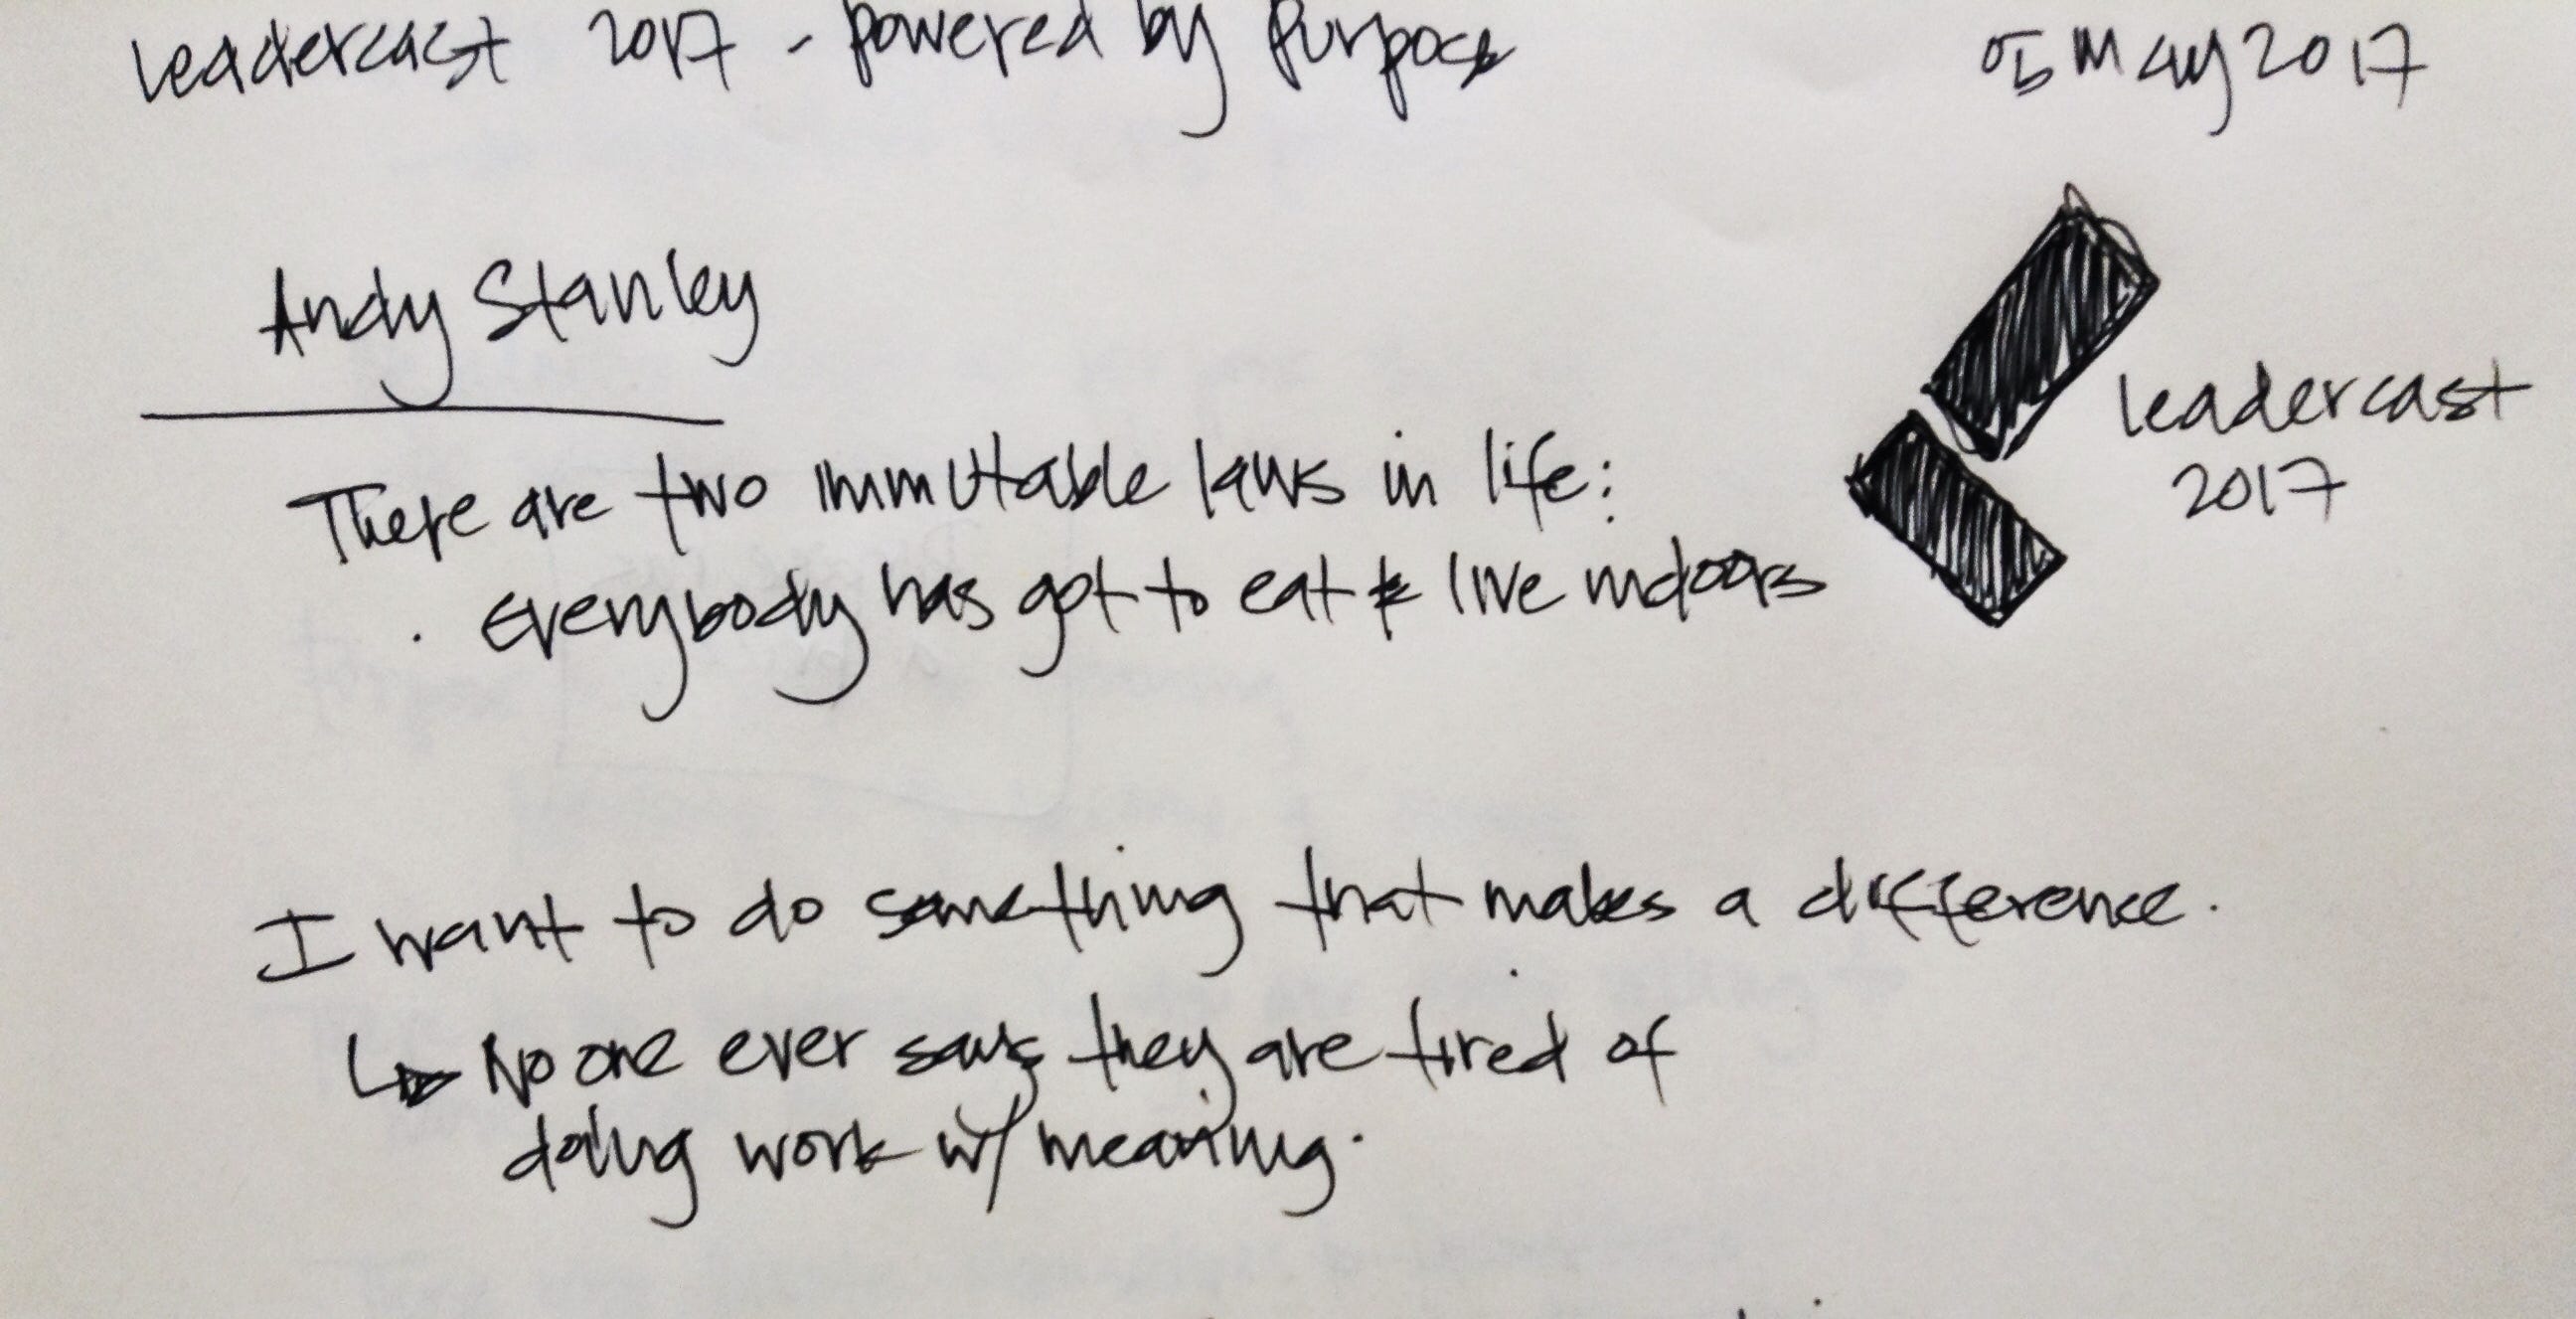 Leadercast 2017 - Powered by Purpose
05 May 2017
Andy Stanley
leadercast
2017
There are two immutable laws in life:
. Everybody has got to eat & live indoors
I want to do something that makes a difference.
↳ No one ever says they are tired of
doing work w/ meaning.